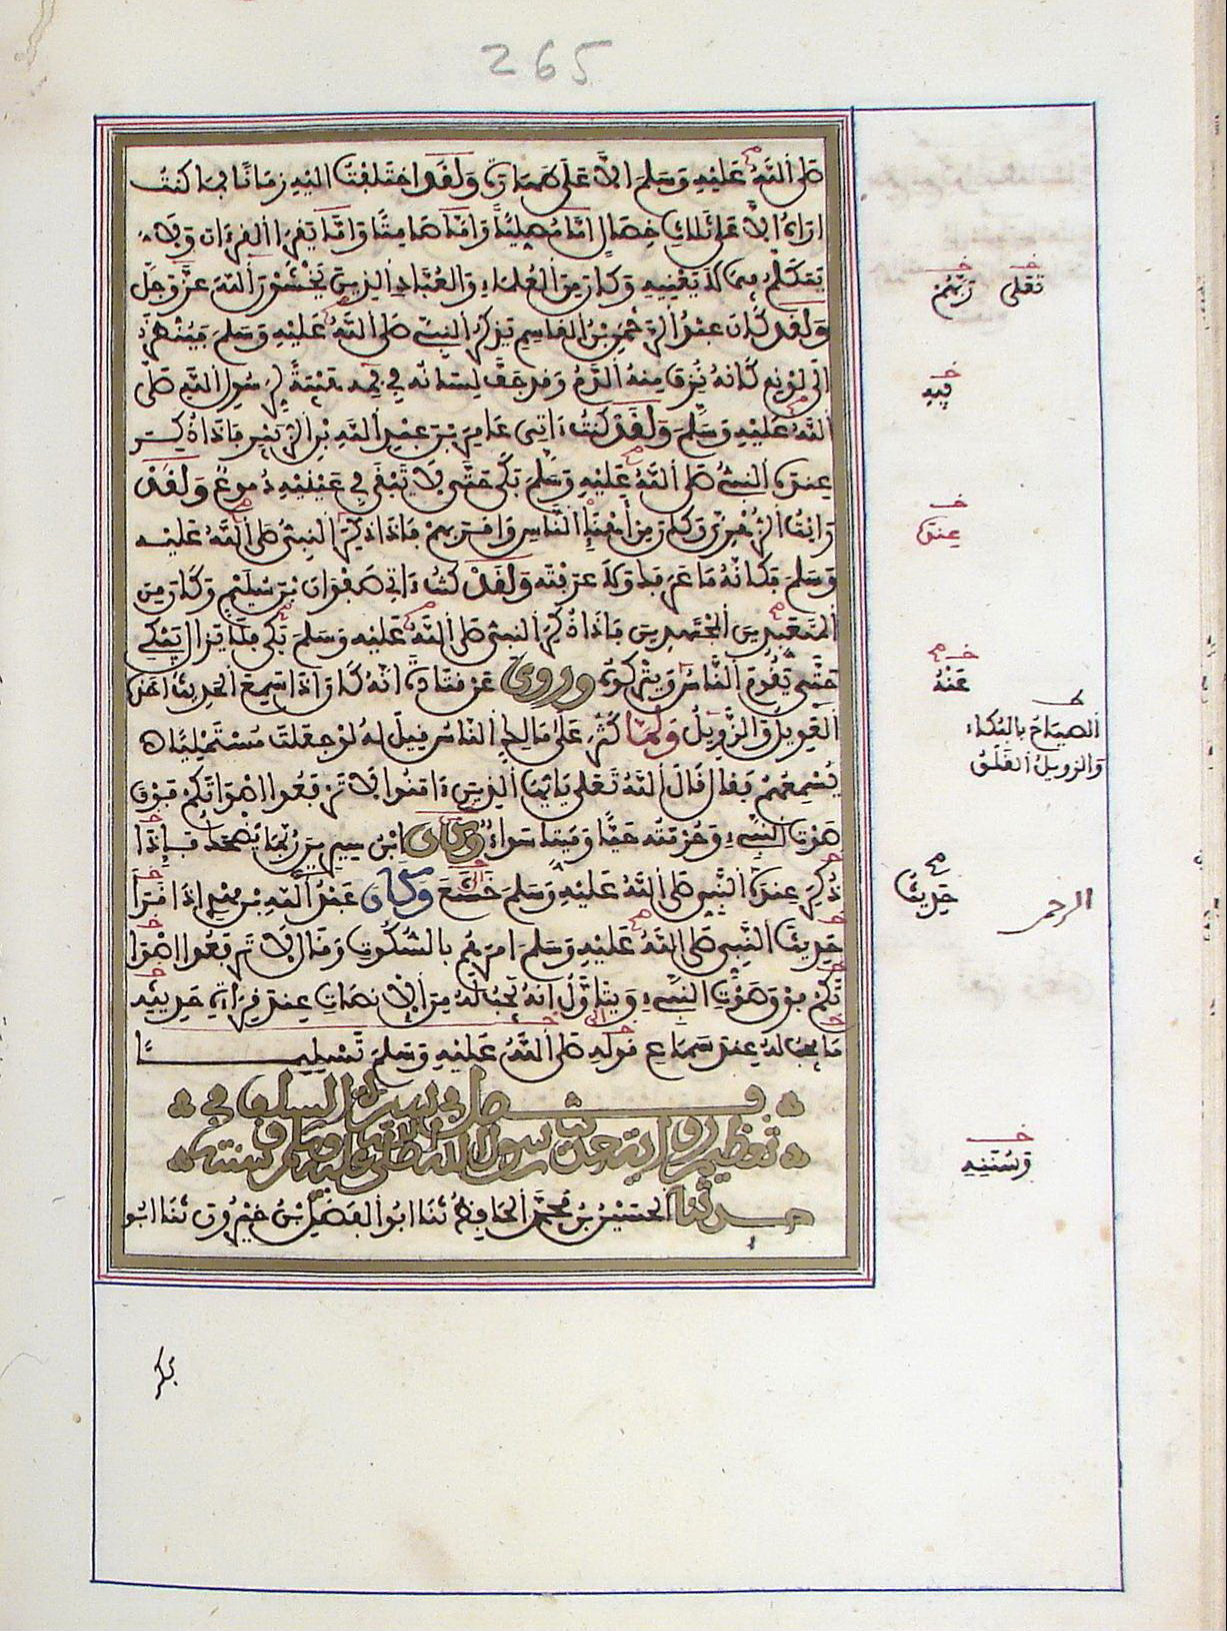 265
صلى الله عليه وسلم الا على طهارة ولقد اختلفت اليه زمانا فما كنت
اراه الا على ثلاث خصال اما مصليا واما صامتا واما يقرأ القرءان ولا
يتكلم فيما لا يعنيه وكان من العلماء والعباد الذين يخشون الله عز وجل
ولقد كان عبد الرحمن بن القاسم يذكر النبي صلى الله عليه وسلم فينظر
الى لونه كانه نزف منه الدم وقد جف لسانه في فمه هيبة لرسول الله صلى
الله عليه وسلم ولقد كنت ءاتي عامر بن عبد الله بن الزبير فاذا ذكر
عنده النبي صلى الله عليه وسلم بكى حتى لا يبقى في عينيه دموع ولقد
رايت الزهري وكان من أهنإ الناس واقربهم فاذا ذكر النبي صلى الله عليه
وسلم فكانه ما عرفك ولا عرفته ولقد كنت ءاتي صفوان بن سليم وكان من
المتعبدين المجتهدين فاذا ذكر النبي صلى الله عليه وسلم بكى فلا يزال يبكي
حتى يقوم الناس ويتركوه وروي عن قتادة انه كان اذا سمع الحديث اخذه
العويل والزويل ولما كثر على مالك الناس قيل له لو جعلت مستمليا
يسمعهم فقال قال الله تعلى يايها الذين ءامنوا لا ترفعوا اصواتكم فوق
صوت النبيء وحرمته حيا وميتا سواء وكان ابن سيرين ربما يضحك فإذا
ذكر عنده النبي صلى الله عليه وسلم خشع وكان عبد الرحمن بن مهدي اذا قرأ
حديث النبي صلى الله عليه وسلم امرهم بالسكوت وقال لا ترفعوا اصوا
تكم فوق صوت النبيء ويتأول انه يجب له من الانصات عند قراءة حديثه
ما يجب له عند سماع قوله صلى الله عليه وسلم تسليما
فصل في سيرة السلف في
تعظيم رواية حديث رسول الله صلى الله عليه وسلم وسنته
حدثنا الحسين بن محمد الحافظ ثنا ابو الفضل بن خيرون ثنا ابو
تعلى ربهم
فيه
عنده
عنه
الصياح بالبكاء
والزويل القلق
حديث
الرحمن
وسننه
بكر